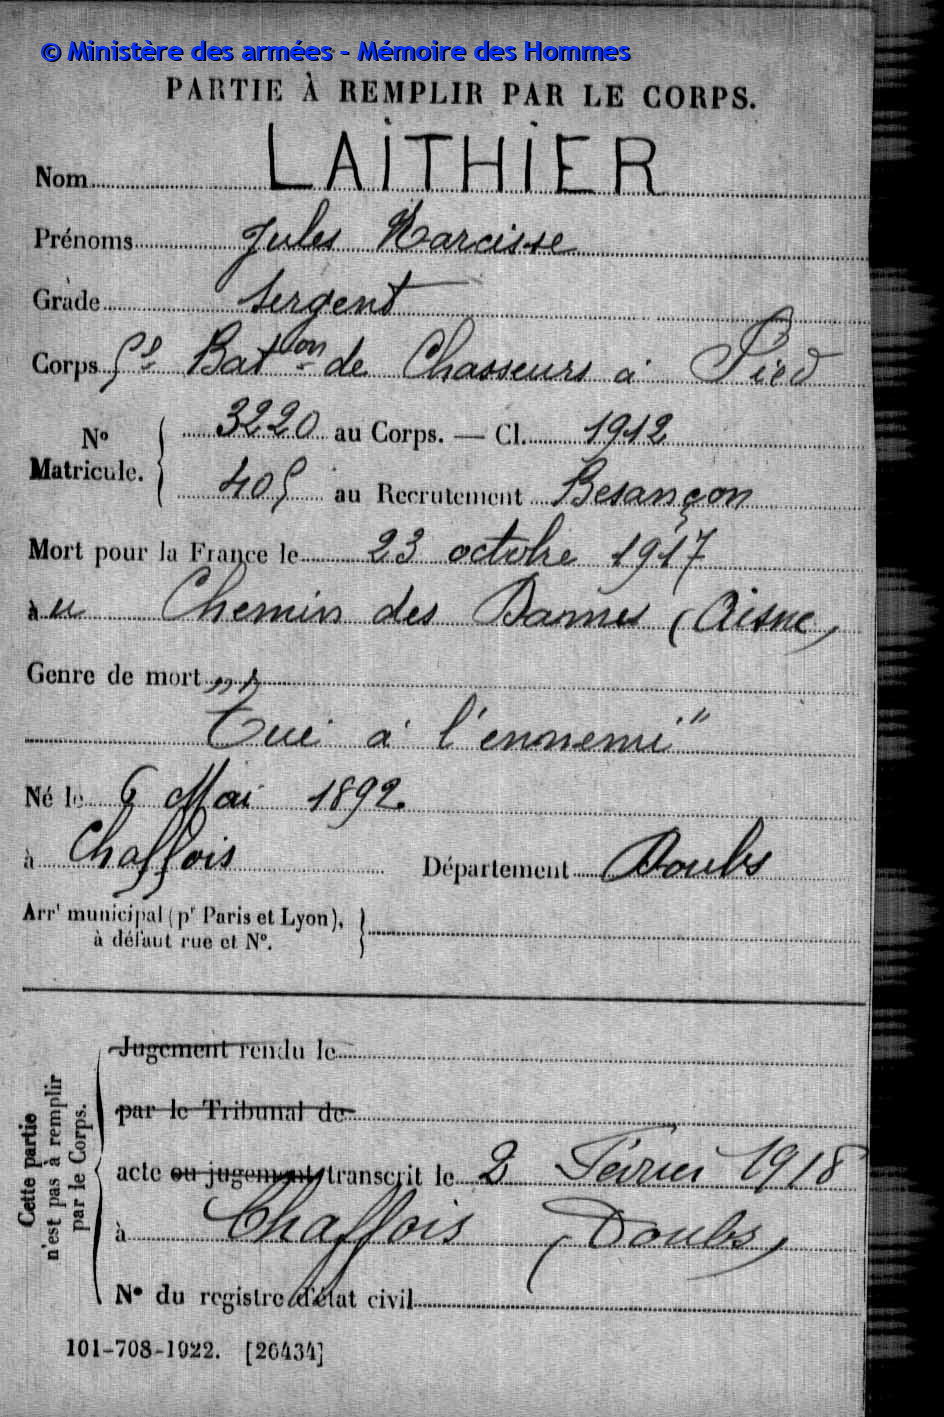 © Ministère des armées - Mémoire des Hommes
PARTIE À REMPLIR PAR LE CORPS.
Nom LAITHIER
Prénoms Jules Narcisse
Grade Sergent
Corps 5e Baton de Chasseurs à Pied
No Matricule. 3220 au Corps. — Cl. 1912
405 au Recrutement Besançon
Mort pour la France le 23 octobre 1917
àu Chemin des Dames (Aisne)
Genre de mort
"Tué à l'ennemi"
Né le 6 Mai 1892
à Chaffois Département Doubs
Arrt municipal (pr Paris et Lyon),
à défaut rue et No.
Cette partie n'est pas à remplir par le Corps.
Jugement rendu le
par le Tribunal de
acte ou jugement transcrit le 2 Février 1918
à Chaffois (Doubs)
No du registre d'état civil
101-708-1922. [26434]